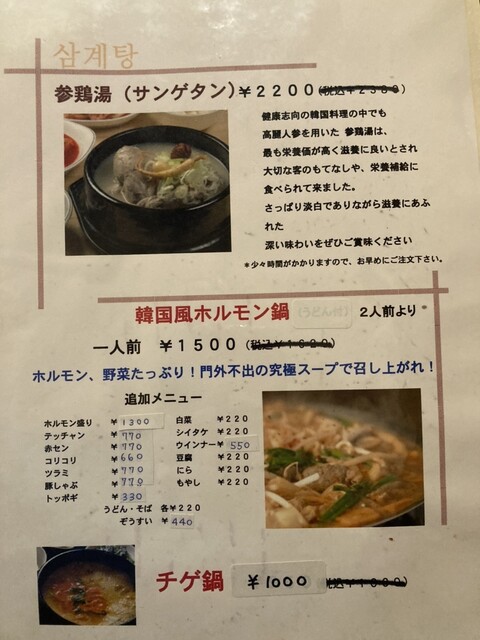 삼계탕
参鶏湯（サンゲタン）￥２２００
健康志向の韓国料理の中でも
高麗人参を用いた 参鶏湯は、
最も栄養価が高く滋養に良いとされ
大切な客のもてなしや、栄養補給に
食べられて来ました。
さっぱり淡白でありながら滋養にあふ
れた
深い味わいをぜひご賞味ください
＊少々時間がかかりますので、お早めにご注文下さい。
韓国風ホルモン鍋（うどん付）２人前より＊
一人前 ￥１５００
ホルモン、野菜たっぷり！門外不出の究極スープで召し上がれ！
追加メニュー
ホルモン盛り ￥1300
テッチャン ￥770
赤セン ￥770
コリコリ ￥660
ツラミ ￥770
豚しゃぶ ￥770
トッポギ ￥330
白菜 ￥２２０
シイタケ ￥２２０
ウインナー ￥550
豆腐 ￥２２０
にら ￥２２０
もやし ￥２２０
うどん・そば 各￥２２０
ぞうすい ￥440
チゲ鍋 ￥1000